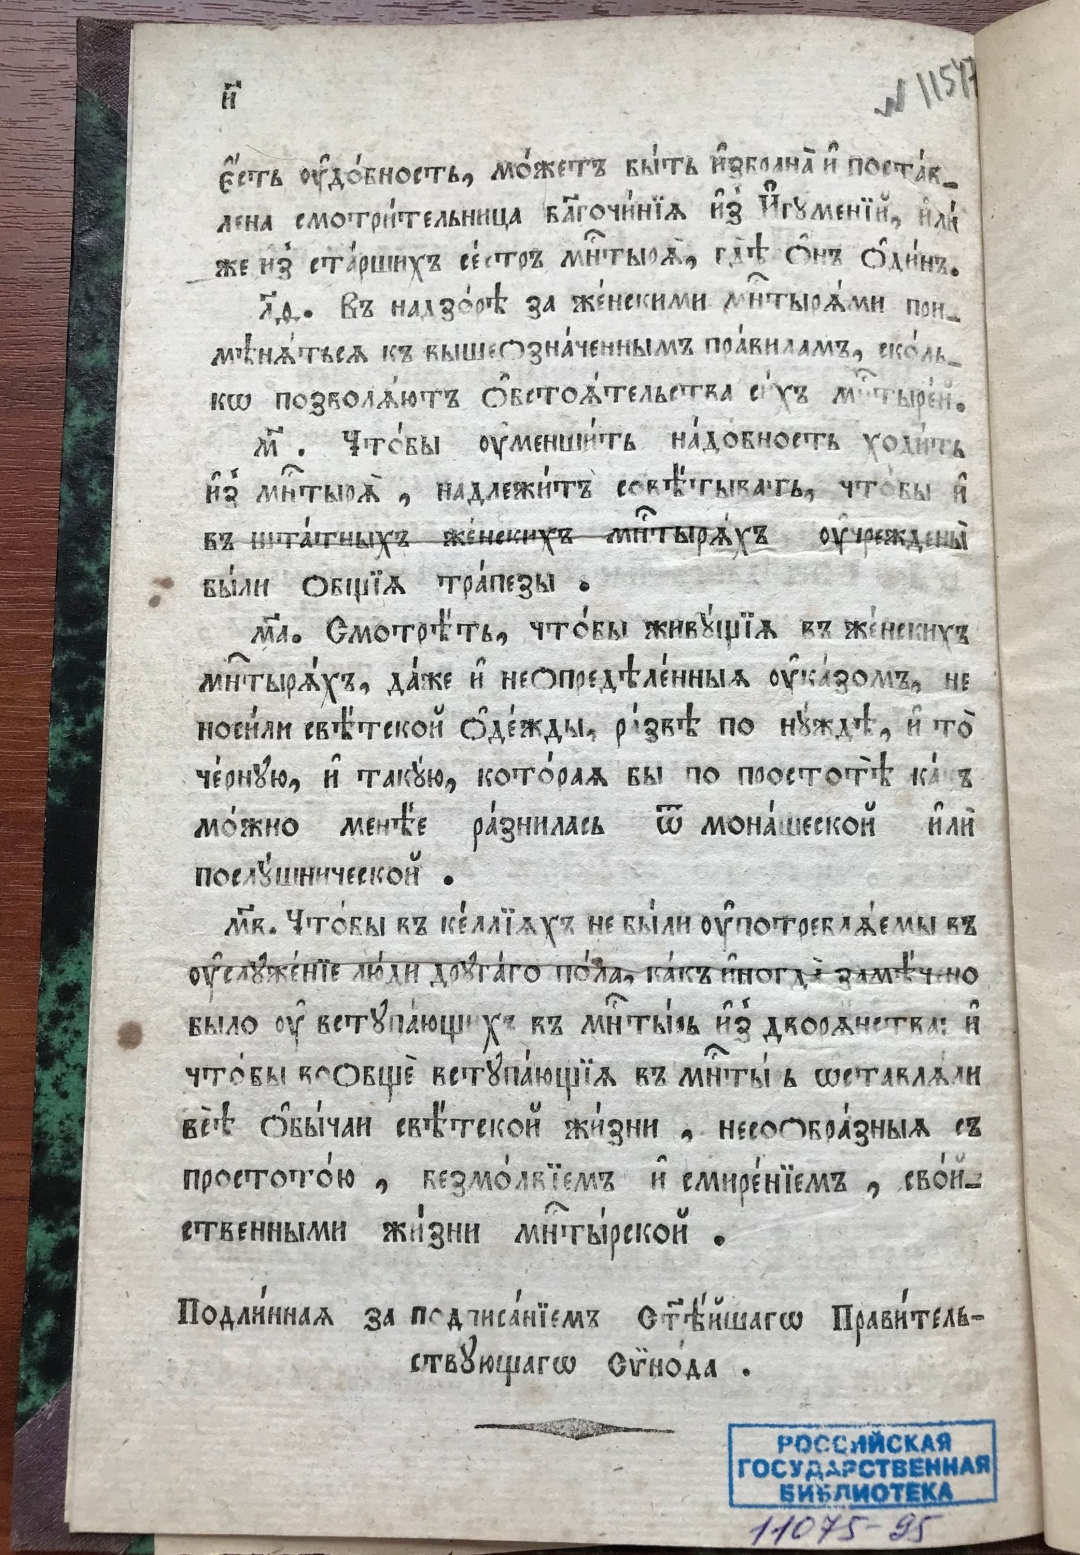 и҃
№ 11547
є҆́сть ᲂу҆до́бность, мо́жетъ бы́ть и҆збрана̀ и҆ поста́в-
лена смотри́тельница бл҃гочи́нїѧ и҆з̾ И҆гуменїй, и҆лѝ
же и҆з̾ ста́ршихъ се́стръ мн҃тырѧ̀, гдѣ̀ ѻ҆́нъ ѻ҆ди́нъ.
л҃ѳ. Въ надзо́рѣ за же́нскими мн҃тырѧ́ми при-
мѣнѧ́тьсѧ къ вышеѻзна́ченнымъ пра́виламъ, ско́ль-
кѡ позволѧ́ютъ ѻ҆бстоѧ́тельства си́хъ мн҃тыре́й.
м҃. Что́бы ᲂуменши́ть на́добность ходи́ть
и҆з̾ мн҃тырѧ̀, надлежи́тъ совѣ́тывать, что́бы и҆
въ шта́тныхъ же́нскихъ мн҃тырѧ́хъ ᲂу҆чреждены̀
бы́ли ѻбщїѧ тра́пезы.
м҃а. Смотрѣ́ть, что́бы живꙋ́щїѧ въ же́нскихъ
мн҃тырѧ́хъ, да́же и҆ неѻпредѣле́нныѧ ᲂу҆ка́зомъ, не
носи́ли свѣ́тской ѻ҆де́жды, ра́звѣ по нꙋ́ждѣ, и҆ то̀
че́рнꙋю, и҆ такꙋ́ю, кото́раѧ бы по простотѣ̀ ка́къ
мо́жно менѣ́е ра́знилась ѿ мона́шеской и҆лѝ
послꙋ́шнической.
м҃в. Что́бы въ ке́ллїѧхъ не бы́ли ᲂу҆потреблѧ́емы въ
ᲂу҆слꙋже́нїе лю́ди дрꙋга́го по́ла, ка́къ и҆ногда̀ замѣ́чено
было ᲂу҆ встꙋпа́ющихъ въ мн҃ты́рь и҆з̾ дворѧ́нства: и҆
что́бы вѻѻбщѐ встꙋпа́ющїѧ въ мн҃ты́рь ѡставлѧ́ли
всѣ̀ ѻ҆бы́чаи свѣ́тской жи́зни, несоѻбра́зныѧ съ
простото́ю, безмо́лвїемъ и҆ смире́нїемъ, сво́й-
ственными жи́зни мн҃ты́рской.
Подли́ннаѧ за подписа́нїемъ Ст҃ѣ́йшагѡ Прави́тель-
ствꙋющагѡ Сѷно́да.
РОССИЙСКАЯ
ГОСУДАРСТВЕННАЯ
БИБЛИОТЕКА
11075-95